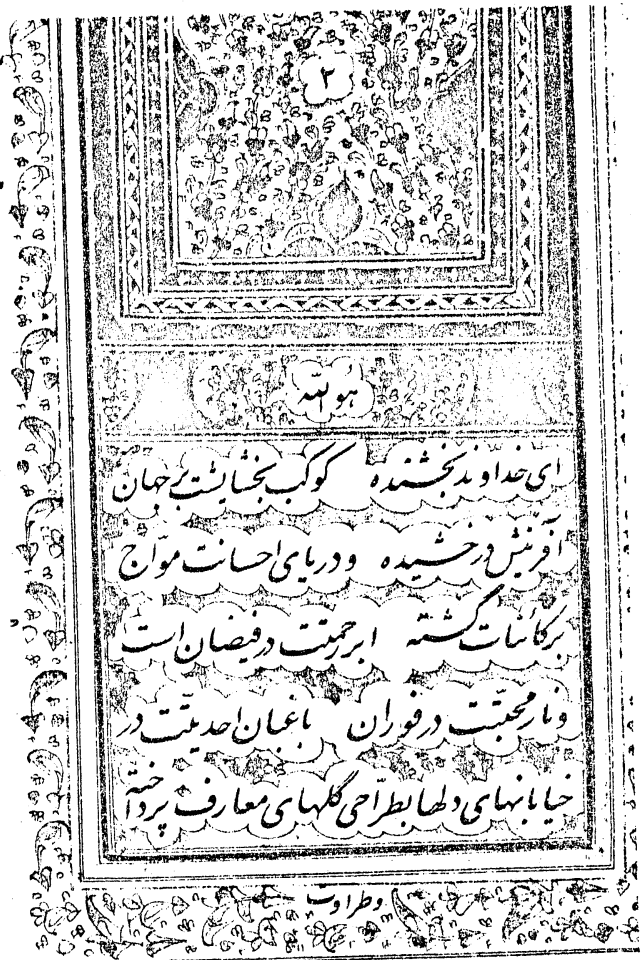 ٢
هو الله
ای خداوند بخشنده کوکب بخشایشت بر جهان
آفرینش درخشیده و دریای احسانت موّاج
بر کائنات گشته ابر رحمتت در فیضان است
و نار محبّتت در فوران باغبان احدیّتت در
خیابانهای دلها بطرّاحی گلهای معارف پرداخته
و طراوت